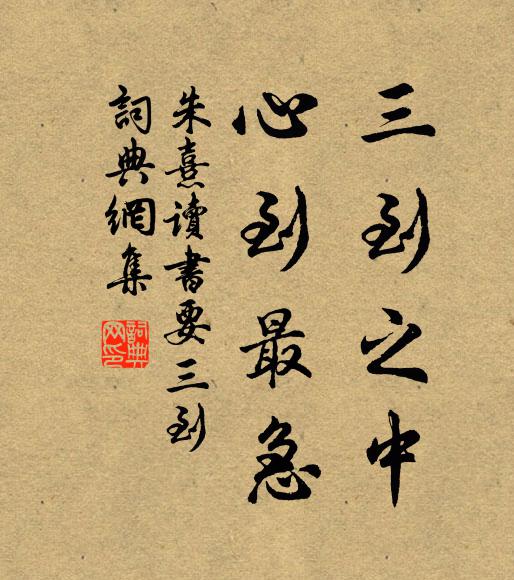 三到之中
心到最急
朱熹讀書要三到
詞典網集
詞典网印